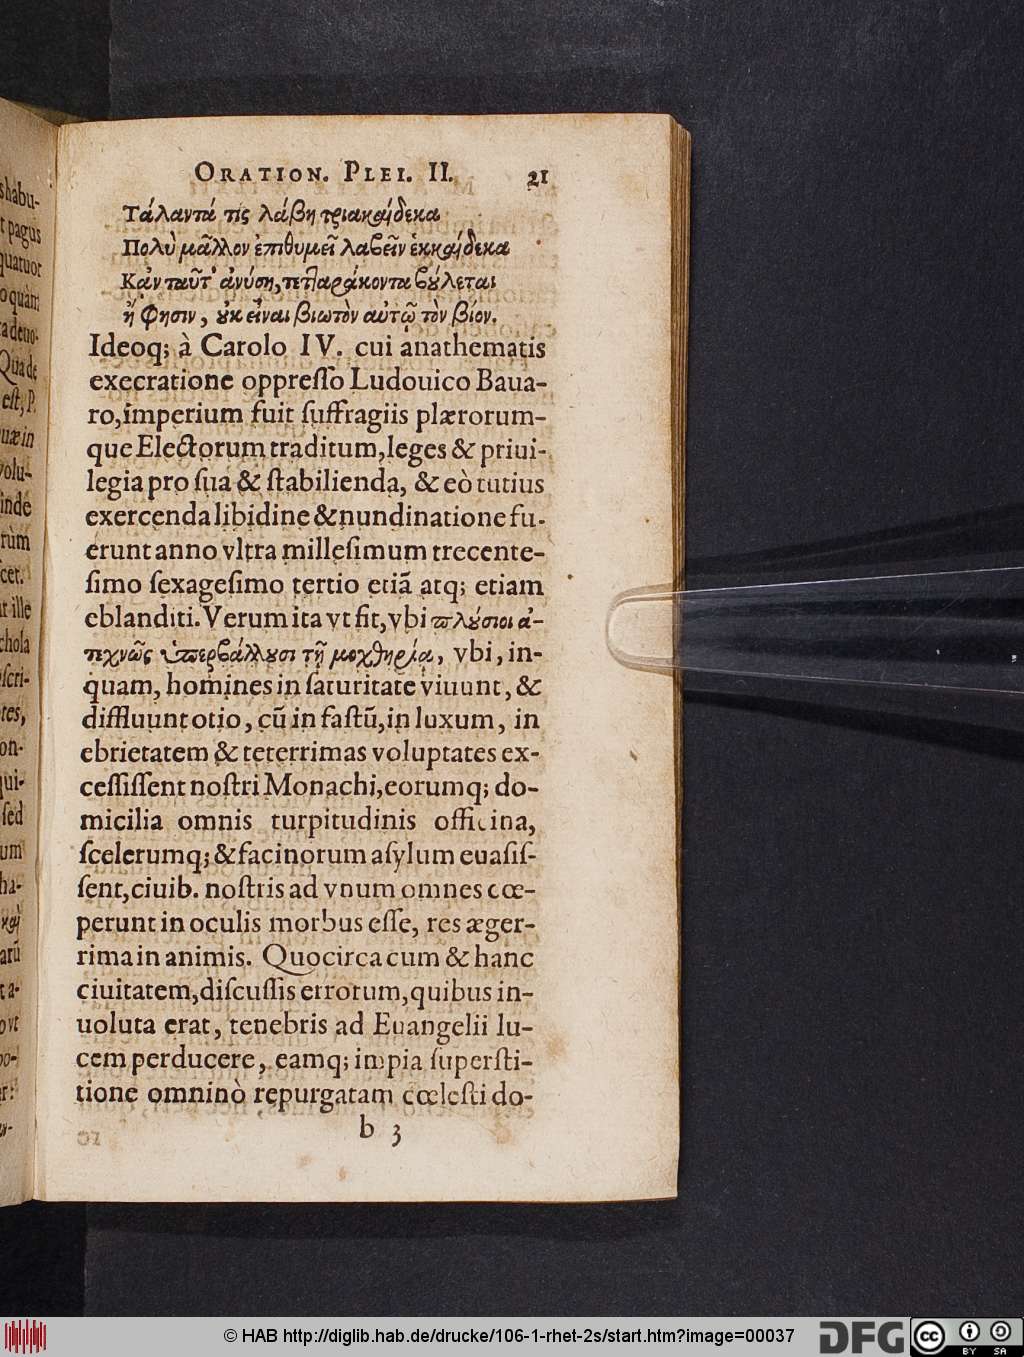 ORATION. PLEI. II. 21
Τάλαντά τὶς λάβῃ τριακαίδεκα
Πολὺ μᾶλλον ἐπιθυμεῖ λαβεῖν ἑκκαίδεκα
Κἀν ταῦτ' ἀνύσῃ, τετλαράκοντα βούλεται
ἤ φησιν, οὐκ εἶναι βιωτὸν αὐτῷ τὸν βίον.
Ideoq; à Carolo IV. cui anathematis
execratione oppreſſo Ludouico Baua-
ro, imperium fuit ſuffragiis plærorum-
que Electorum traditum, leges & priui-
legia pro ſua & ſtabilienda, & eò tutius
exercenda libidine & nundinatione fu-
erunt anno vltra milleſimum trecente-
ſimo ſexageſimo tertio etiã atq; etiam
eblanditi. Verum ita vt fit, vbi πλούσιοι ἀ-
τεχνῶς ὑπερβάλλουσι τῇ μοχθηρίᾳ, vbi, in-
quam, homines in ſaturitate viuunt, &
diffluunt otio, cũ in faſtũ, in luxum, in
ebrietatem & teterrimas voluptates ex-
ceſſiſſent noſtri Monachi, eorumq; do-
micilia omnis turpitudinis officina,
ſcelerumq; & facinorum aſylum euaſiſ-
ſent, ciuib. noſtris ad vnum omnes cœ-
perunt in oculis morbus eſſe, res æger-
rima in animis. Quocirca cum & hanc
ciuitatem, diſcuſſis errorum, quibus in-
uoluta erat, tenebris ad Euangelii lu-
cem perducere, eamq; impia ſuperſti-
tione omninò repurgatam cœleſti do-
b 3
s habu-
t pagus
quatuor
o quàm
a deuo-
Qua de
eſt, P.
uæ in
volu-
inde
rùm
cet.
ut ille
chola
ſcri-
tes,
on-
qui-
ſed
um
ha-
καὶ
arũ
t a-
o vt
© HAB http://diglib.hab.de/drucke/106-1-rhet-2s/start.htm?image=00037
DFG
cc
BY SA